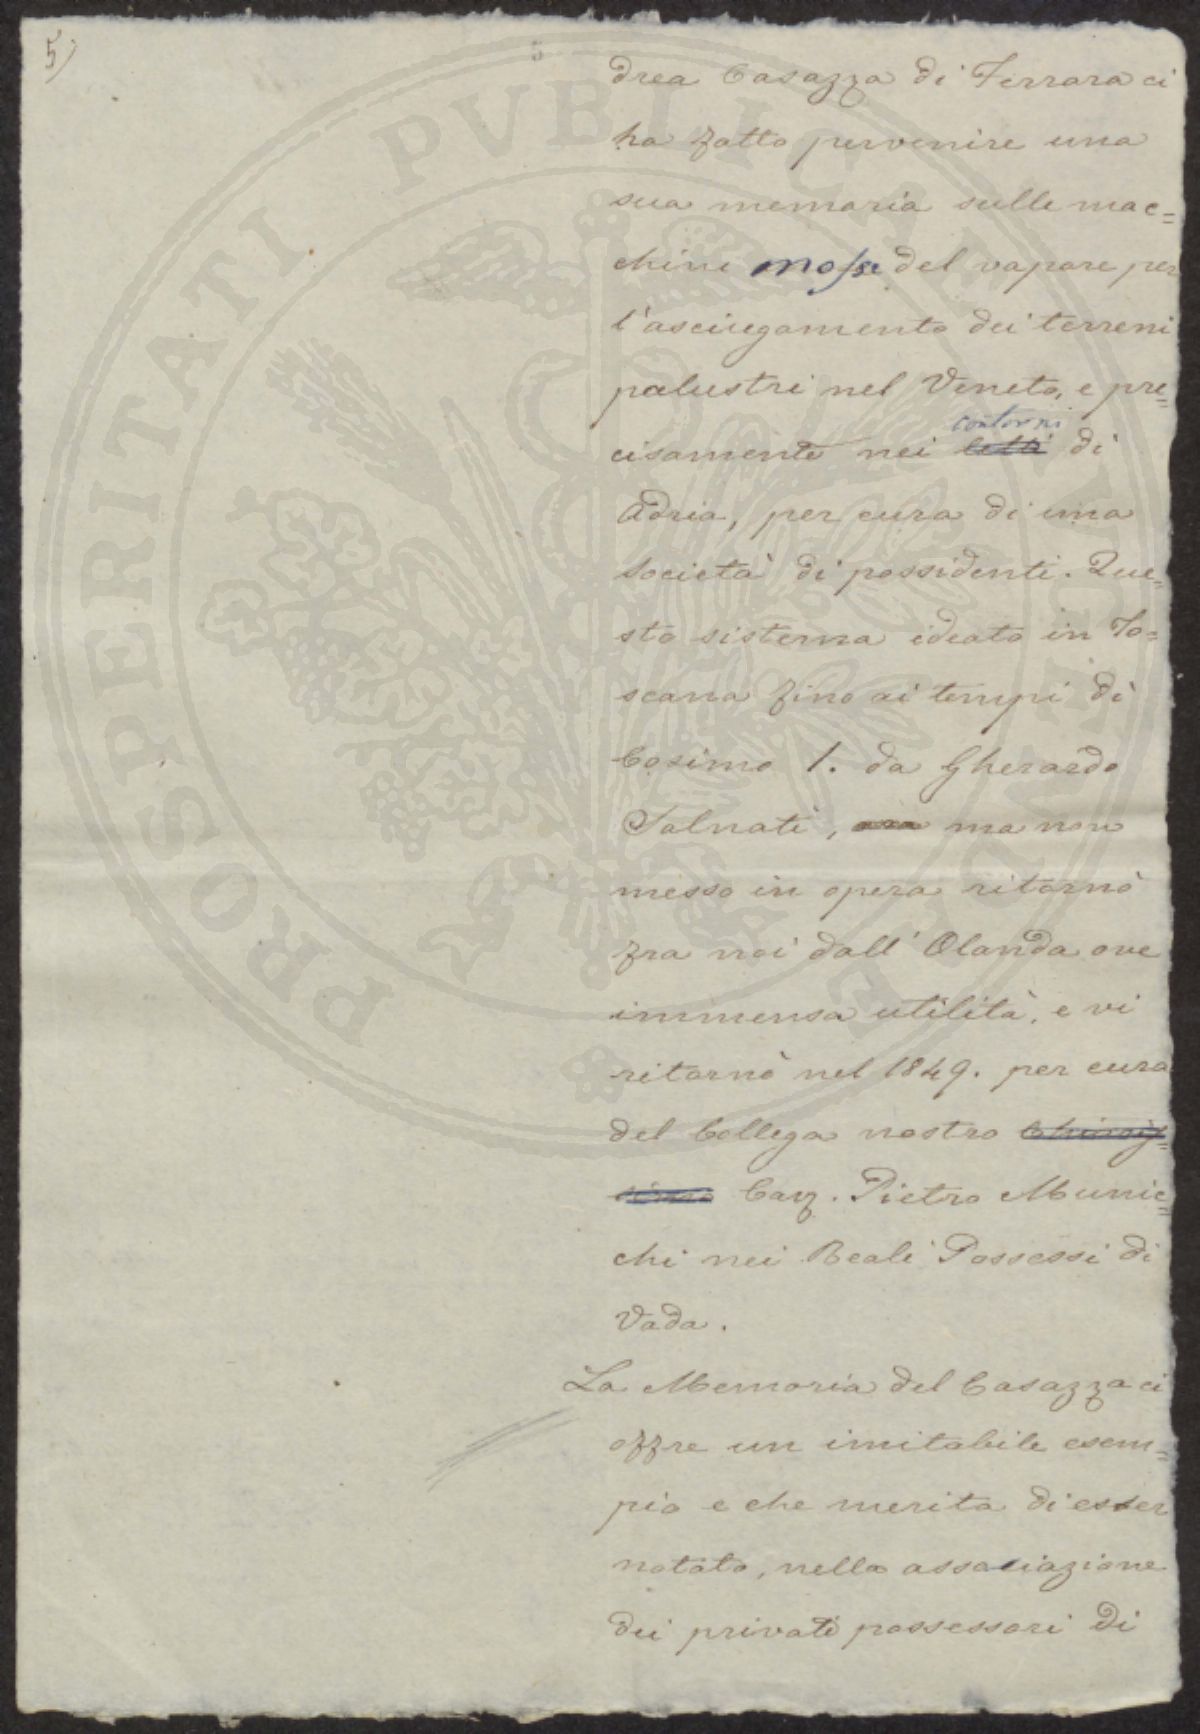 5)
5
drea Casazza di Ferrara ci
ha fatto pervenire una
sua memoria sulle mac=
chine mosse del vapore per
l'asciugamento dei terreni
palustri nel Veneto, e pre=
contorni
cisamente nei letti di
Adria, per cura di una
Società di possidenti. Que=
sto sistema ideato in To=
scana fino ai tempi di
Cosimo I. da Gherardo
Salviati, ma non
messo in opera ritornò
fra noi dall'Olanda ove
immensa utilità, e vi
ritornò nel 1849. per cura
del Collega nostro
Cav. Pietro Munic=
chi nei Reali Possessi di
Vada.
La Memoria del Casazza ci
offre un imitabile esem=
pio e che merita di esser
notato, nella associazione
dei privati possessori di
PROSPERITATI PUBLICAE AUGENDAE